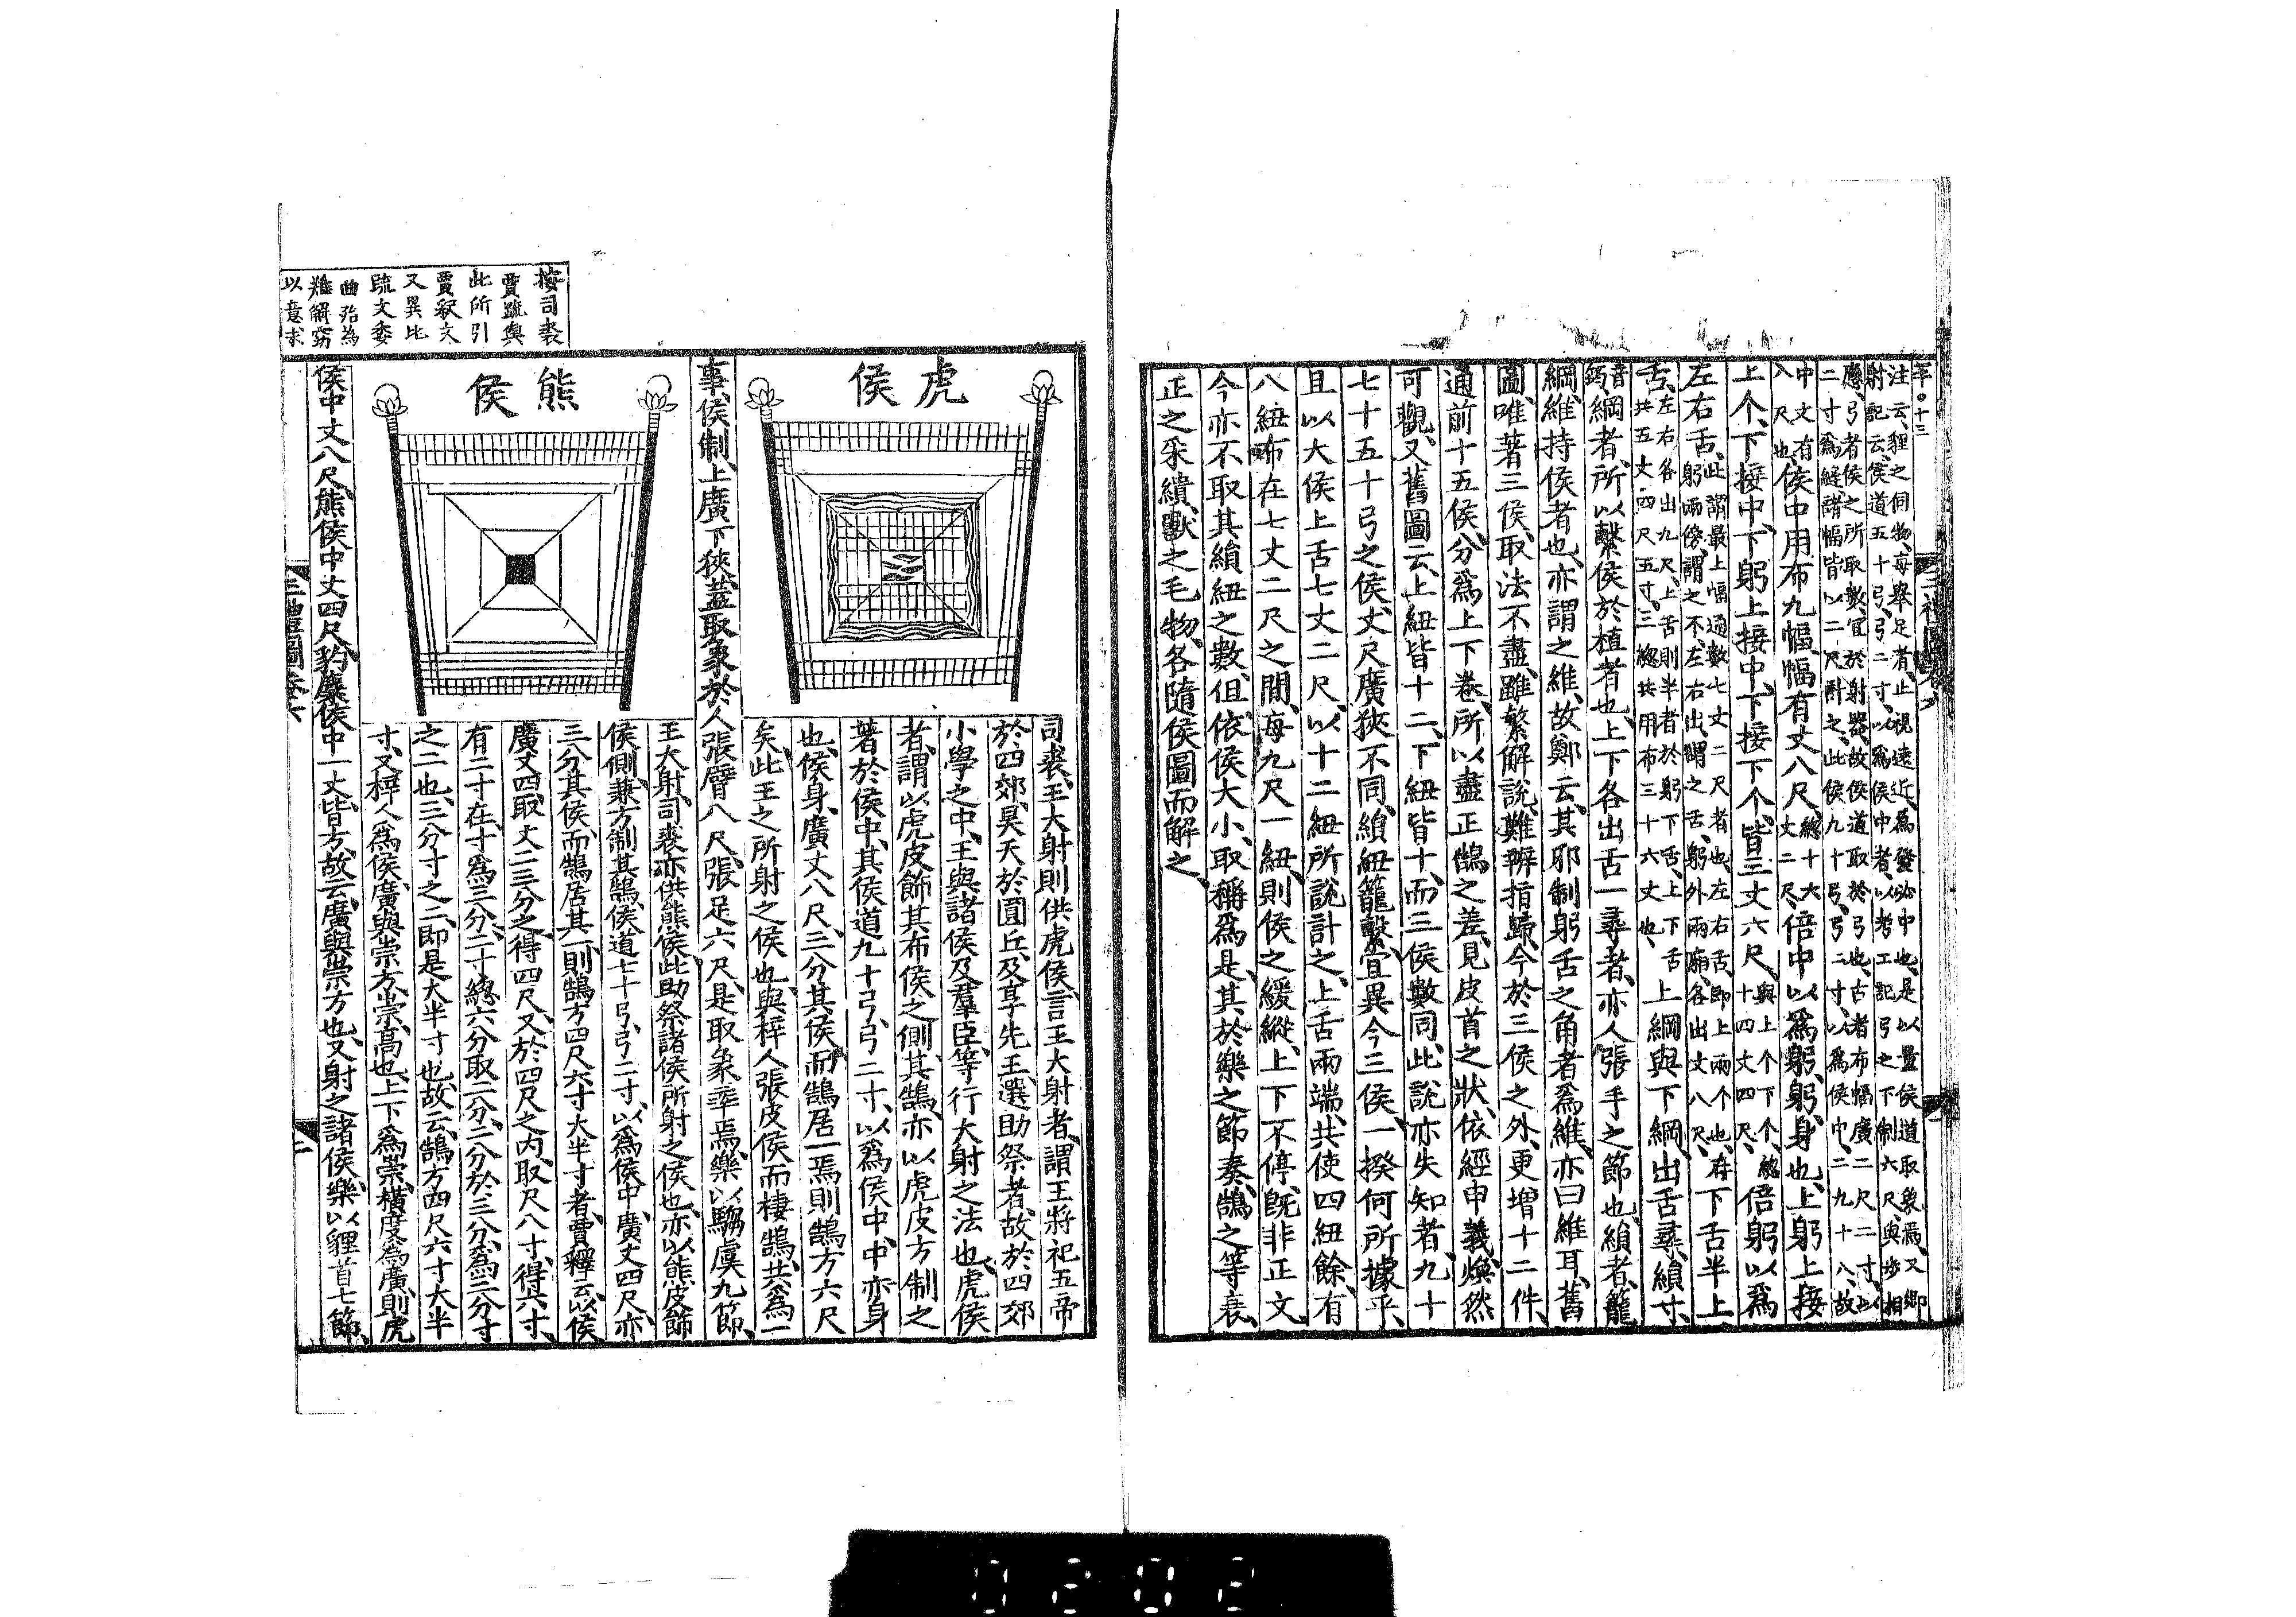 注云貍之伺物每舉足者止視遠近爲發必中也是以量侯道取象焉又鄉
射記云侯道五十弓弓二寸以爲侯中者以考工記弓之下制六尺與步相
應弓者侯之所取數宜於射器故侯道取於弓也古者布幅廣二尺二寸以
二寸爲縫諸幅皆以二尺計之此侯九十弓弓二寸以爲侯中二九十八故
中丈有
八尺也侯中用布九幅幅有丈八尺總十六
丈二尺倍中以爲躬躬身也上躬上接
上个下接中下躬上接中下接下个皆三丈六尺與上个下个總
十四丈四尺倍躬以爲
左右舌此謂最上幅通數七丈二尺者也左右舌即上兩个也在
躬兩傍謂之不左右出謂之舌躬外兩廂各出丈八尺下舌半上
舌左右各出九尺上舌則半者於躬下舌上下舌
共五丈四尺五寸三總共用布三十六丈也上綱與下綱出舌尋縜寸
音
鈞綱者所以繫侯於植者也上下各出舌一尋者亦人張手之節也縜者籠
綱維持侯者也亦謂之維故鄭云其邪制躬舌之角者爲維亦曰維耳舊
圖唯著三侯取法不盡雖繁解說難辨指歸今於三侯之外更增十二件
通前十五侯分爲上下卷所以盡正鵠之差見皮首之狀依經申義煥然
可觀又舊圖云上紐皆十二下紐皆十而三侯數同此說亦失知者九十
七十五十弓之侯丈尺廣狹不同縜紐籠繫宜異今三侯一揆何所據乎
且以大侯上舌七丈二尺以十二紐所說計之上舌兩端共使四紐餘有
八紐布在七丈二尺之間每九尺一紐則侯之緩縱上下不停旣非正文
今亦不取其縜紐之數但依侯大小取稱爲是其於樂之節奏鵠之等衰
正之采繢獸之毛物各隨侯圖而解之
虎侯
司裘王大射則供虎侯言王大射者謂王將祀五帝
於四郊昊天於圓丘及享先王選助祭者故於四郊
小學之中王與諸侯及羣臣等行大射之法也虎侯
者謂以虎皮飾其布侯之側其鵠亦以虎皮方制之
著於侯中其侯道九十弓弓二寸以爲侯中中亦身
也侯身廣丈八尺三分其侯而鵠居一焉則鵠方六尺
矣此王之所射之侯也與梓人張皮侯而棲鵠共爲一
事侯制上廣下狹蓋取象於人張臂八尺張足六尺是取象率焉樂以騶虞九節
熊侯
王大射司裘亦供熊侯此助祭諸侯所射之侯也亦以熊皮飾
侯側兼方制其鵠侯道七十弓弓二寸以爲侯中廣丈四尺亦
三分其侯而鵠居其一則鵠方四尺六寸大半寸者賈釋云以侯
廣丈四取丈二三分之得四尺又於四尺之內取尺八寸得六寸
有二寸在寸爲三分二寸總六分取二分二分於三分爲三分寸
之二也三分寸之二即是大半寸也故云鵠方四尺六寸大半
寸又梓人爲侯廣與崇方崇高也上下爲崇橫度爲廣則虎
侯中丈八尺熊侯中丈四尺豹麋侯中一丈皆方故云廣與崇方也又射之諸侯樂以貍首七節
三禮圖卷六
二
按司裘
賈疏與
此所引
賈釈文
又異比
疏文委
曲殆為
難解窃
以意求
0202